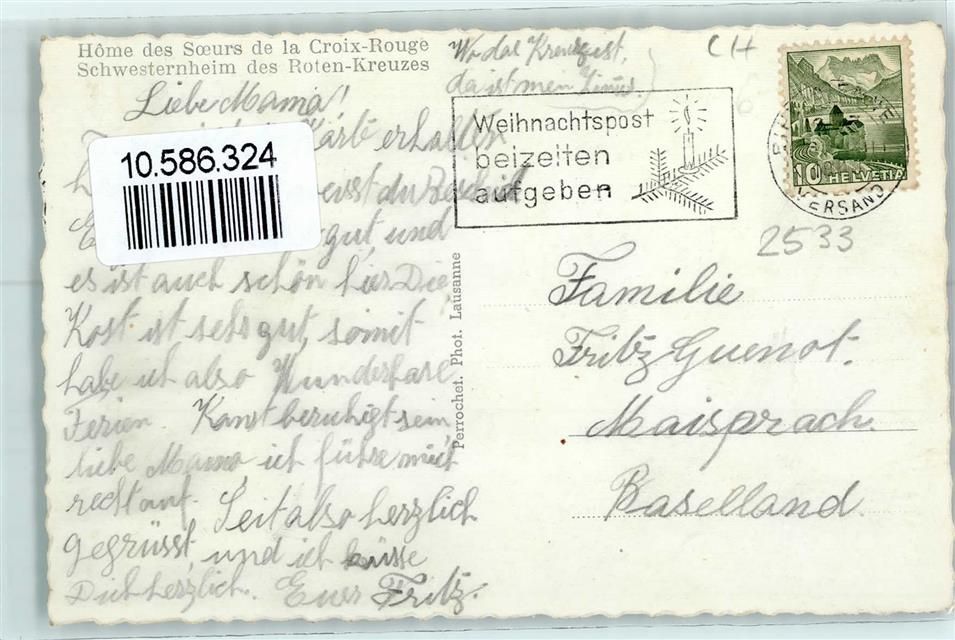 Hôme des Sœurs de la Croix-Rouge
Schwesternheim des Roten-Kreuzes
Wo das Kreuz ist,
da ist mein
CH
Weihnachtspost
beizeiten
aufgeben
VERSAND
10 HELVETIA
2533
Liebe Mama!
Karte erhalten
10.586.324
gut, und
es ist auch schön hier Die
Kost ist sehr gut, somit
habe ich also Wunderbare
Ferien. Kanst beruhigt sein
liebe Mama, ich führe mich
recht auf. Seit also herzlich
gegrüsst, und ich küsse
Dich herzlich. Euer Fritz.
Perrochet. Phot. Lausanne
Familie
Fritz Guenot.
Maisprach.
Baselland